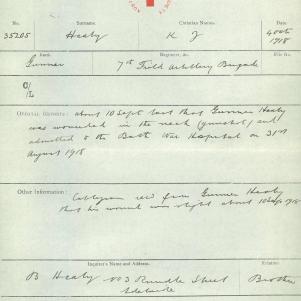 No. Surname. Christian Names. 4 Oct
35205 Healy K J 1918
Rank Regiment, &c. File No.
Gunner 7th Field Artillery Brigade
O/L
OFFICIAL REPORTS: about 10 Sept last that Gunner Healy
was wounded in the neck (gunshot) and
admitted to the Bath War Hospital on 31st
August 1918
Other Information: Cablegram recd from Gunner Healy
that his wound was slight about 10 Sep 1918
Inquirer's Name and Address. Relation
B Healy Rundle Street Brother
Adelaide